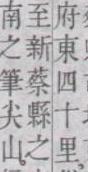 府東四十里
至新蔡縣之
南之筆尖山